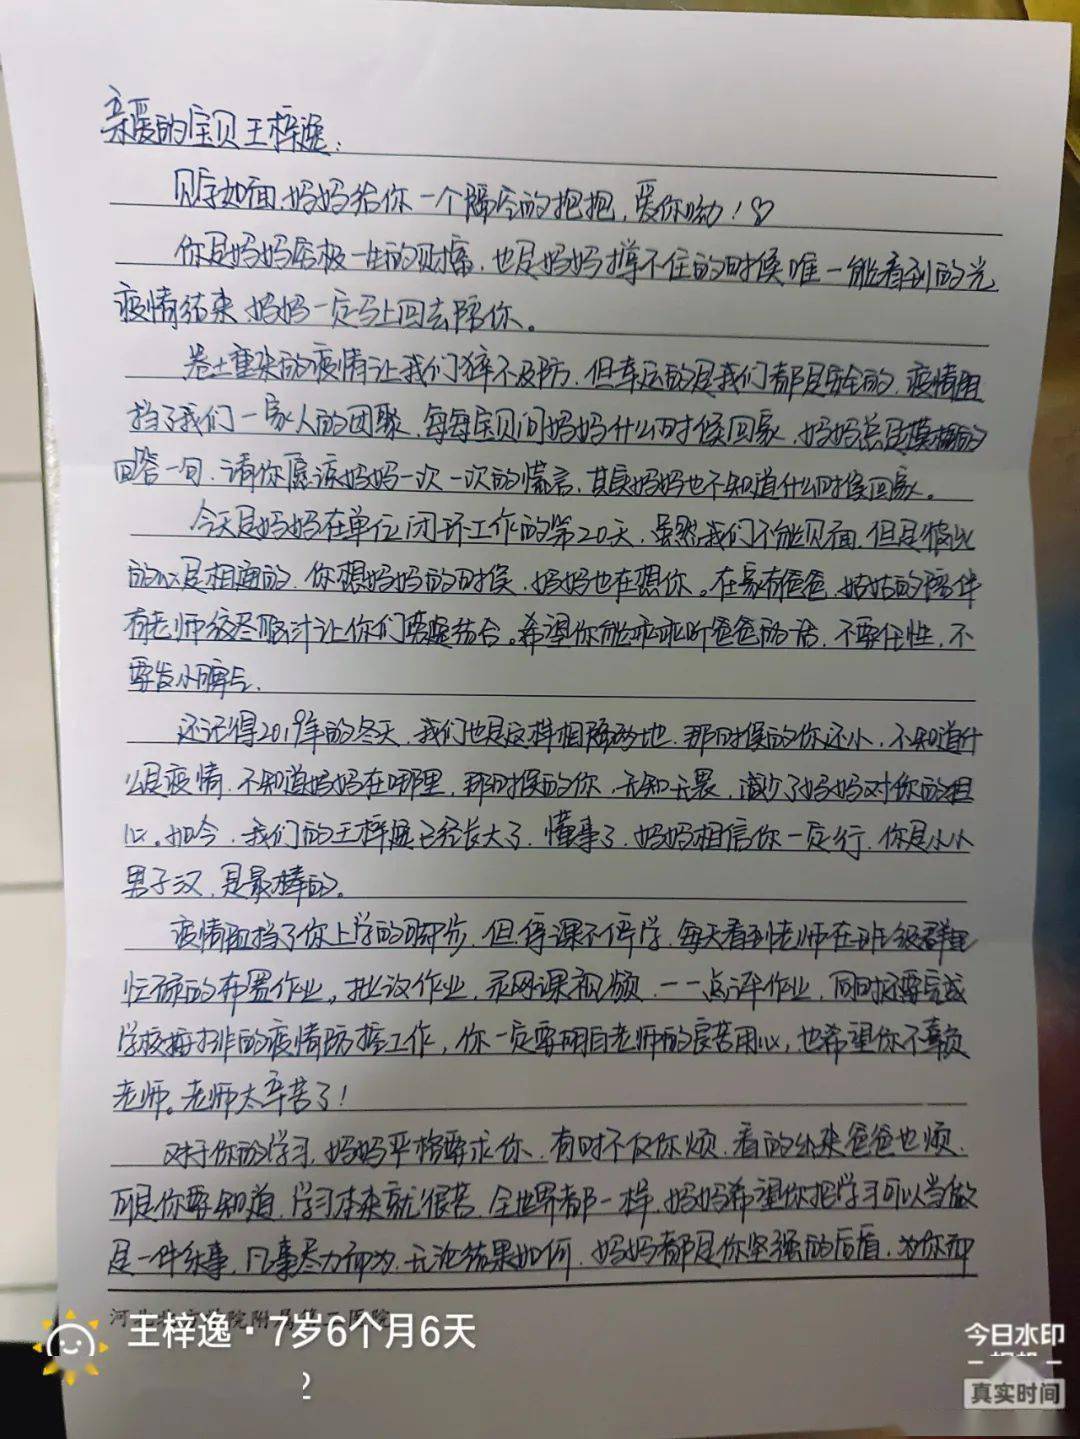 亲爱的宝贝王梓逸:
见字如面,妈妈给你一个隔空的抱抱,爱你呦!♡
你是妈妈穷极一生的财富,也是妈妈撑不住的时候唯一能看到的光
疫情结束,妈妈一定马上回去陪你。
卷土重来的疫情让我们猝不及防,但幸运的是我们都是安全的,疫情阻
挡了我们一家人的团聚,每每宝贝问妈妈什么时候回家,妈妈总是模糊的
回答一句,请你原谅妈妈一次一次的谎言,其实妈妈也不知道什么时候回家。
今天是妈妈在单位闭环工作的第20天,虽然我们不能见面,但是彼此
的心是相通的,你想妈妈的时候,妈妈也在想你。在家有爸爸,姑姑的陪伴
有老师绞尽脑汁让你们劳逸结合。希望你能乖乖听爸爸的话,不要任性,不
要发小脾气,
还记得2019年的冬天,我们也是这样相隔两地,那时候的你还小,不知道什
么是疫情,不知道妈妈在哪里,那时候的你,无知无畏,减少了妈妈对你的担
心。如今,我们的王梓逸已经长大了,懂事了,妈妈相信你一定行,你是小小
男子汉,是最棒的。
疫情阻挡了你上学的脚步,但停课不停学,每天看到老师在班级群里
忙碌的布置作业,批改作业,录网课视频,一一点评作业,同时还要完成
学校安排的疫情防控工作,你一定要明白老师的良苦用心,也希望你不辜负
老师。老师太辛苦了!
对于你的学习,妈妈严格要求你,有时不仅你烦,看的出来爸爸也烦,
可是你要知道,学习本来就很苦,全世界都一样,妈妈希望你把学习可以当做
是一件乐事,凡事尽力而为,无论结果如何,妈妈都是你坚强的后盾,为你命
王梓逸·7岁6个月6天
2
今日水印
相机
真实时间